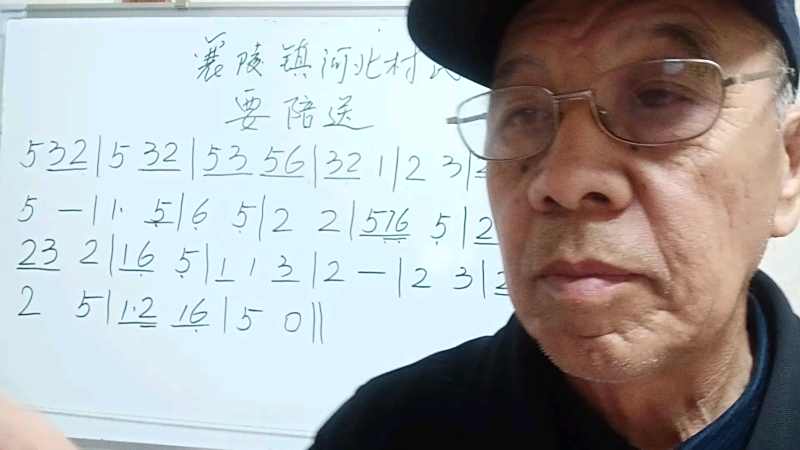 襄陵镇河北村民
要陪送
5 32 | 5 32 | 53 56 | 32 1 | 2 3 |
5 — | 1· 5 | 6 5 | 2 2 | 576 5 | 2
23 2 | 16 5 | 1 1 3 | 2 — | 2 3 | 2
2 5 | 1·2 16 | 5 0 ||